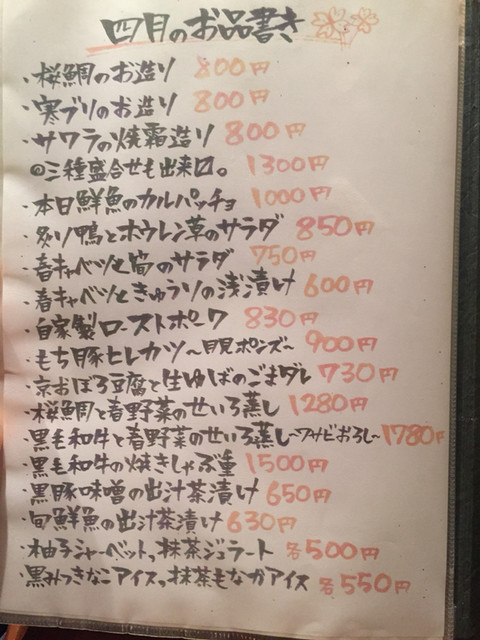 四月のお品書き
・桜鯛のお造り 800円
・寒ブリのお造り 800円
・サワラの焼霜造り 800円
◎三種盛合せも出来〼。 1300円
・本日鮮魚のカルパッチョ 1000円
・炙り鴨とホウレン草のサラダ 850円
・春キャベツと筍のサラダ 750円
・春キャベツときゅうりの浅漬け 600円
・自家製ローストポーク 830円
・もち豚ヒレカツ〜月見ポンズ〜 900円
・京おぼろ豆腐と生ゆばのごまダレ 730円
・桜鯛と春野菜のせいろ蒸し 1280円
・黒毛和牛と春野菜のせいろ蒸し〜ワサビおろし〜 1780円
・黒毛和牛の焼きしゃぶ重 1500円
・黒豚味噌の出汁茶漬け 650円
・旬鮮魚の出汁茶漬け 630円
・柚子シャーベット、抹茶ジェラート 各500円
・黒みつきなこアイス、抹茶もなかアイス 各550円